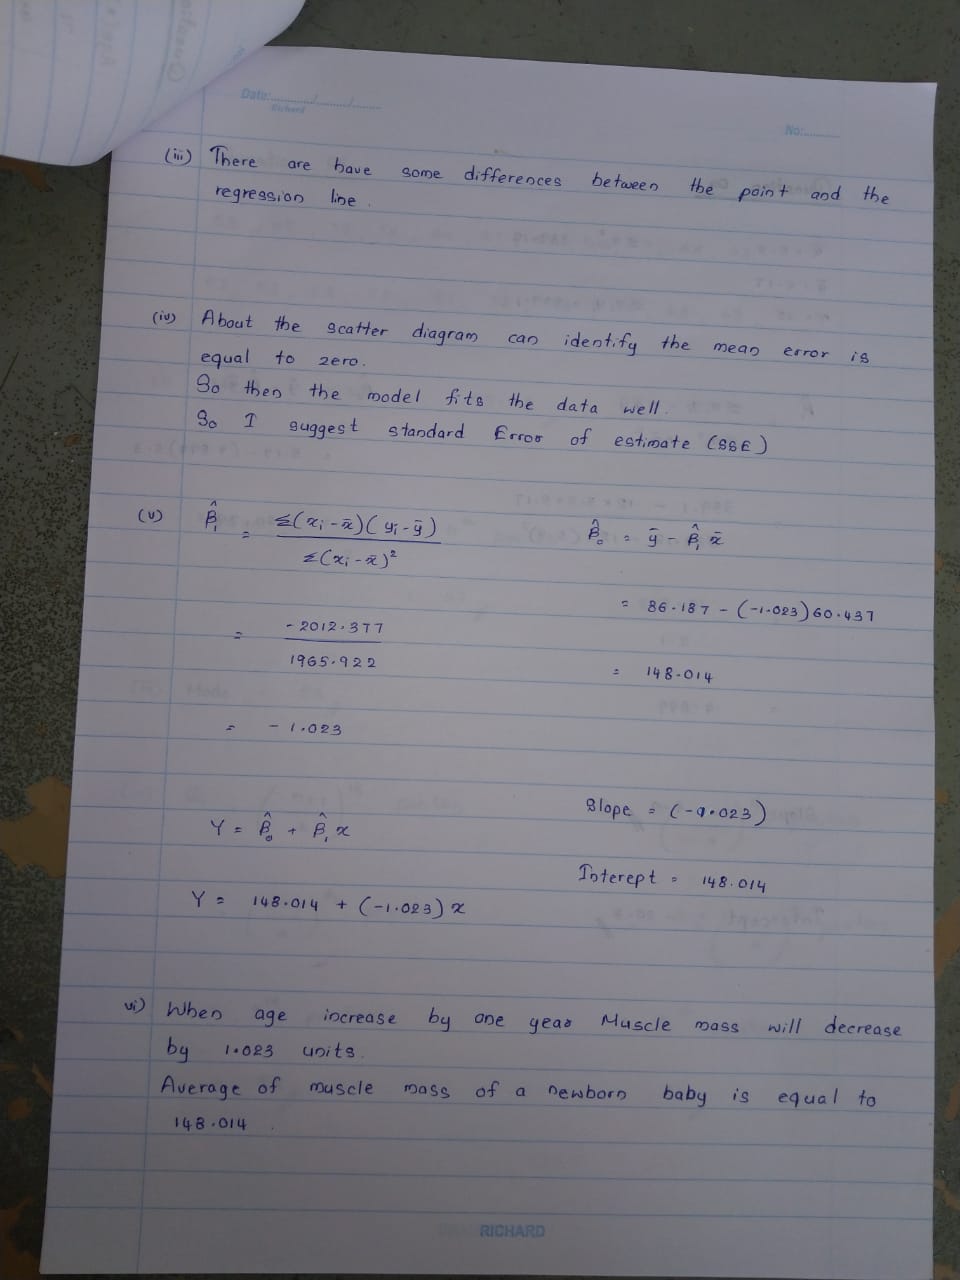 Date:............/............/............
Richard
No:............
(iii) There are have some differences between the point and the
regression line.
(iv) About the scatter diagram can identify the mean error is
equal to zero.
So then the model fits the data well.
So I suggest standard Error of estimate (SSE)
(v) β̂₁ = Σ(xᵢ - x̄)(yᵢ - ȳ) / Σ(xᵢ - x̄)²
β̂₀ = ȳ - β̂₁ x̄
= 86.187 - (-1.023)60.437
= -2012.377 / 1965.922
= 148.014
= -1.023
Slope = (-9.023)
Y = β̂₀ + β̂₁ x
Interept = 148.014
Y = 148.014 + (-1.023) x
vi) When age increase by one year Muscle mass will decrease
by 1.023 units.
Average of muscle mass of a newborn baby is equal to
148.014.
RICHARD